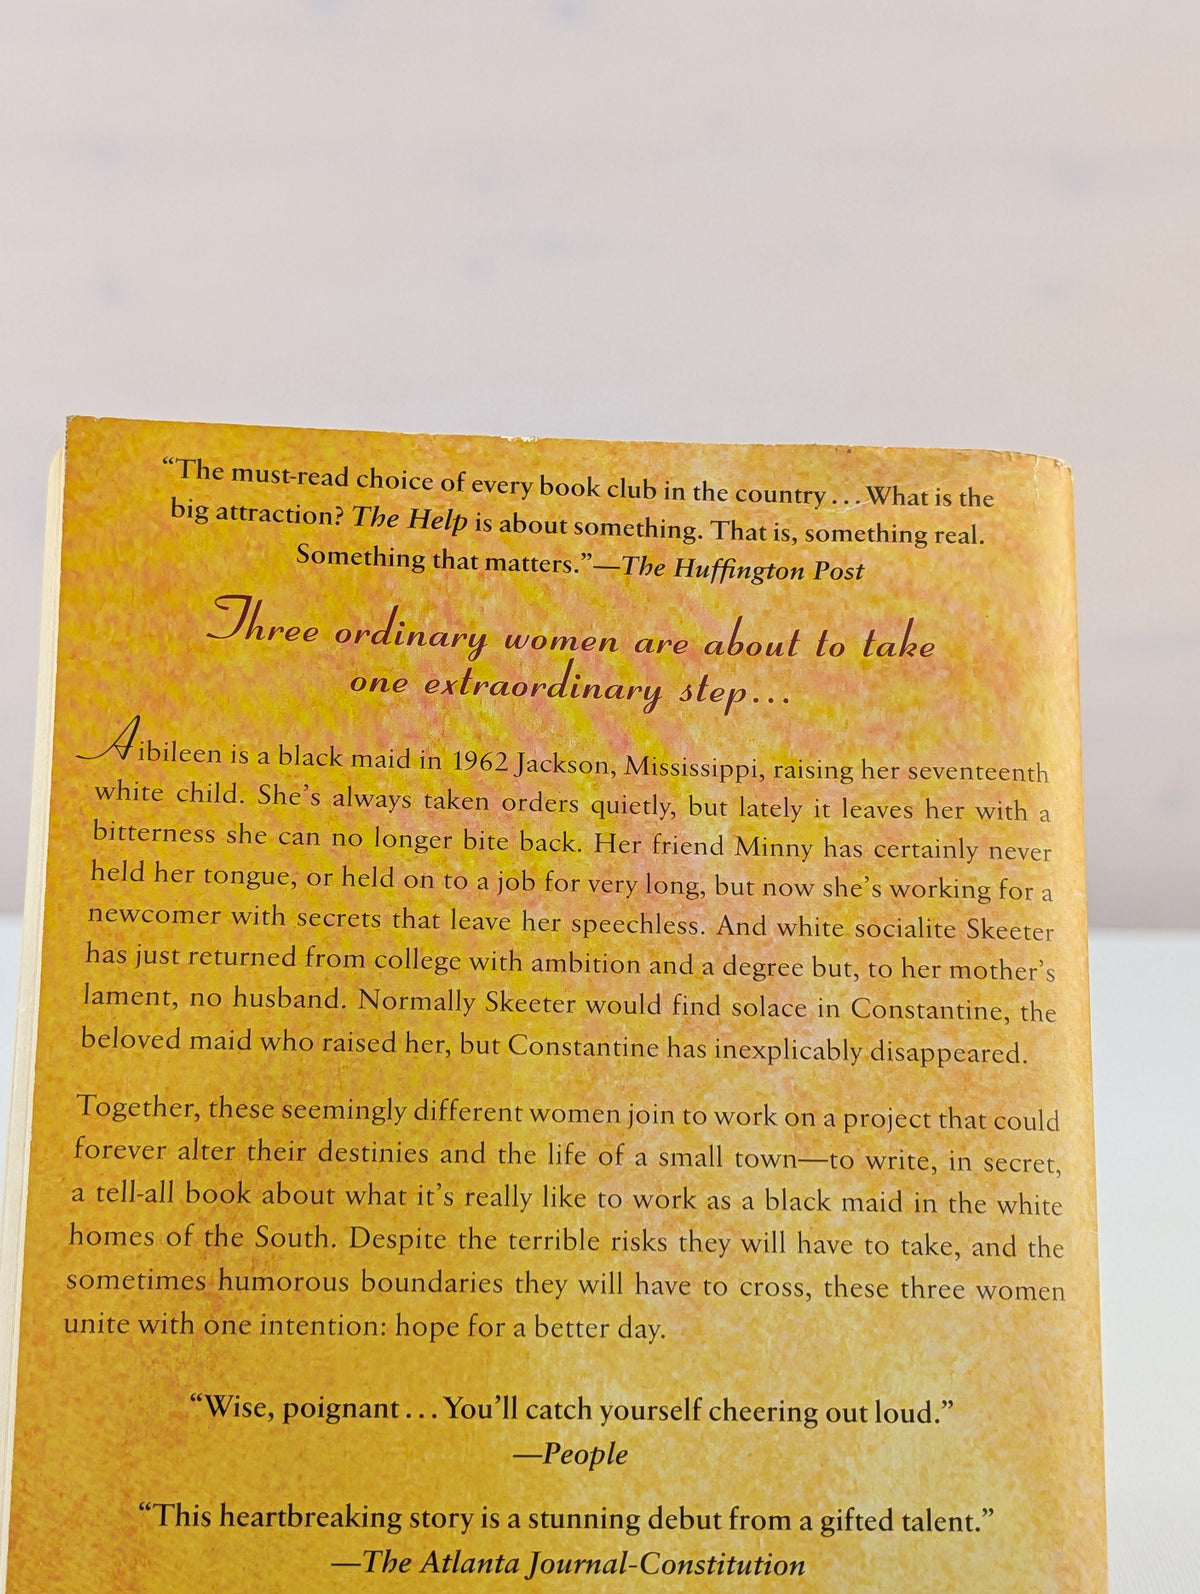 “The must-read choice of every book club in the country . . . What is the
big attraction? The Help is about something. That is, something real.
Something that matters.”—The Huffington Post
Three ordinary women are about to take
one extraordinary step...
Aibileen is a black maid in 1962 Jackson, Mississippi, raising her seventeenth
white child. She’s always taken orders quietly, but lately it leaves her with a
bitterness she can no longer bite back. Her friend Minny has certainly never
held her tongue, or held on to a job for very long, but now she’s working for a
newcomer with secrets that leave her speechless. And white socialite Skeeter
has just returned from college with ambition and a degree but, to her mother’s
lament, no husband. Normally Skeeter would find solace in Constantine, the
beloved maid who raised her, but Constantine has inexplicably disappeared.
Together, these seemingly different women join to work on a project that could
forever alter their destinies and the life of a small town—to write, in secret,
a tell-all book about what it’s really like to work as a black maid in the white
homes of the South. Despite the terrible risks they will have to take, and the
sometimes humorous boundaries they will have to cross, these three women
unite with one intention: hope for a better day.
“Wise, poignant . . . You’ll catch yourself cheering out loud.”
—People
“This heartbreaking story is a stunning debut from a gifted talent.”
—The Atlanta Journal-Constitution